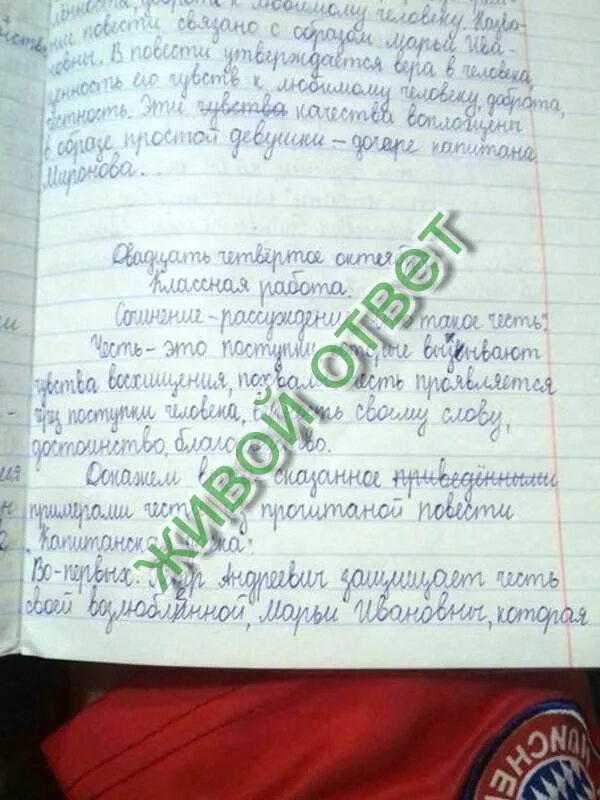 доброта к любимому человеку. Назва-
ние повести связано с образом Марьи Ива-
новны. В повести утверждается вера в человека,
ценность его чувств к любимому человеку, доброта,
честность. Эти чувства качества воплощены
в образе простой девушки – дочере капитана
Миронова..
Двадцать четвёртое октя
Классная работа.
Сочинение-рассуждени такое честь?
Честь – это поступки вызывают
чувства восхищения, похвал честь проявляется
через поступки человека, в сть своему слову,
достоинство, благо во.
Докажем в сказанное приведёнными
примерами чест прочитаной повести
"Капитанска ка":
Во-первых: Андреевич защищает честь
своей возлюбленной, Марьи Ивановны, которая
ЖИВОЙ ОТВЕТ
MÜNCHE